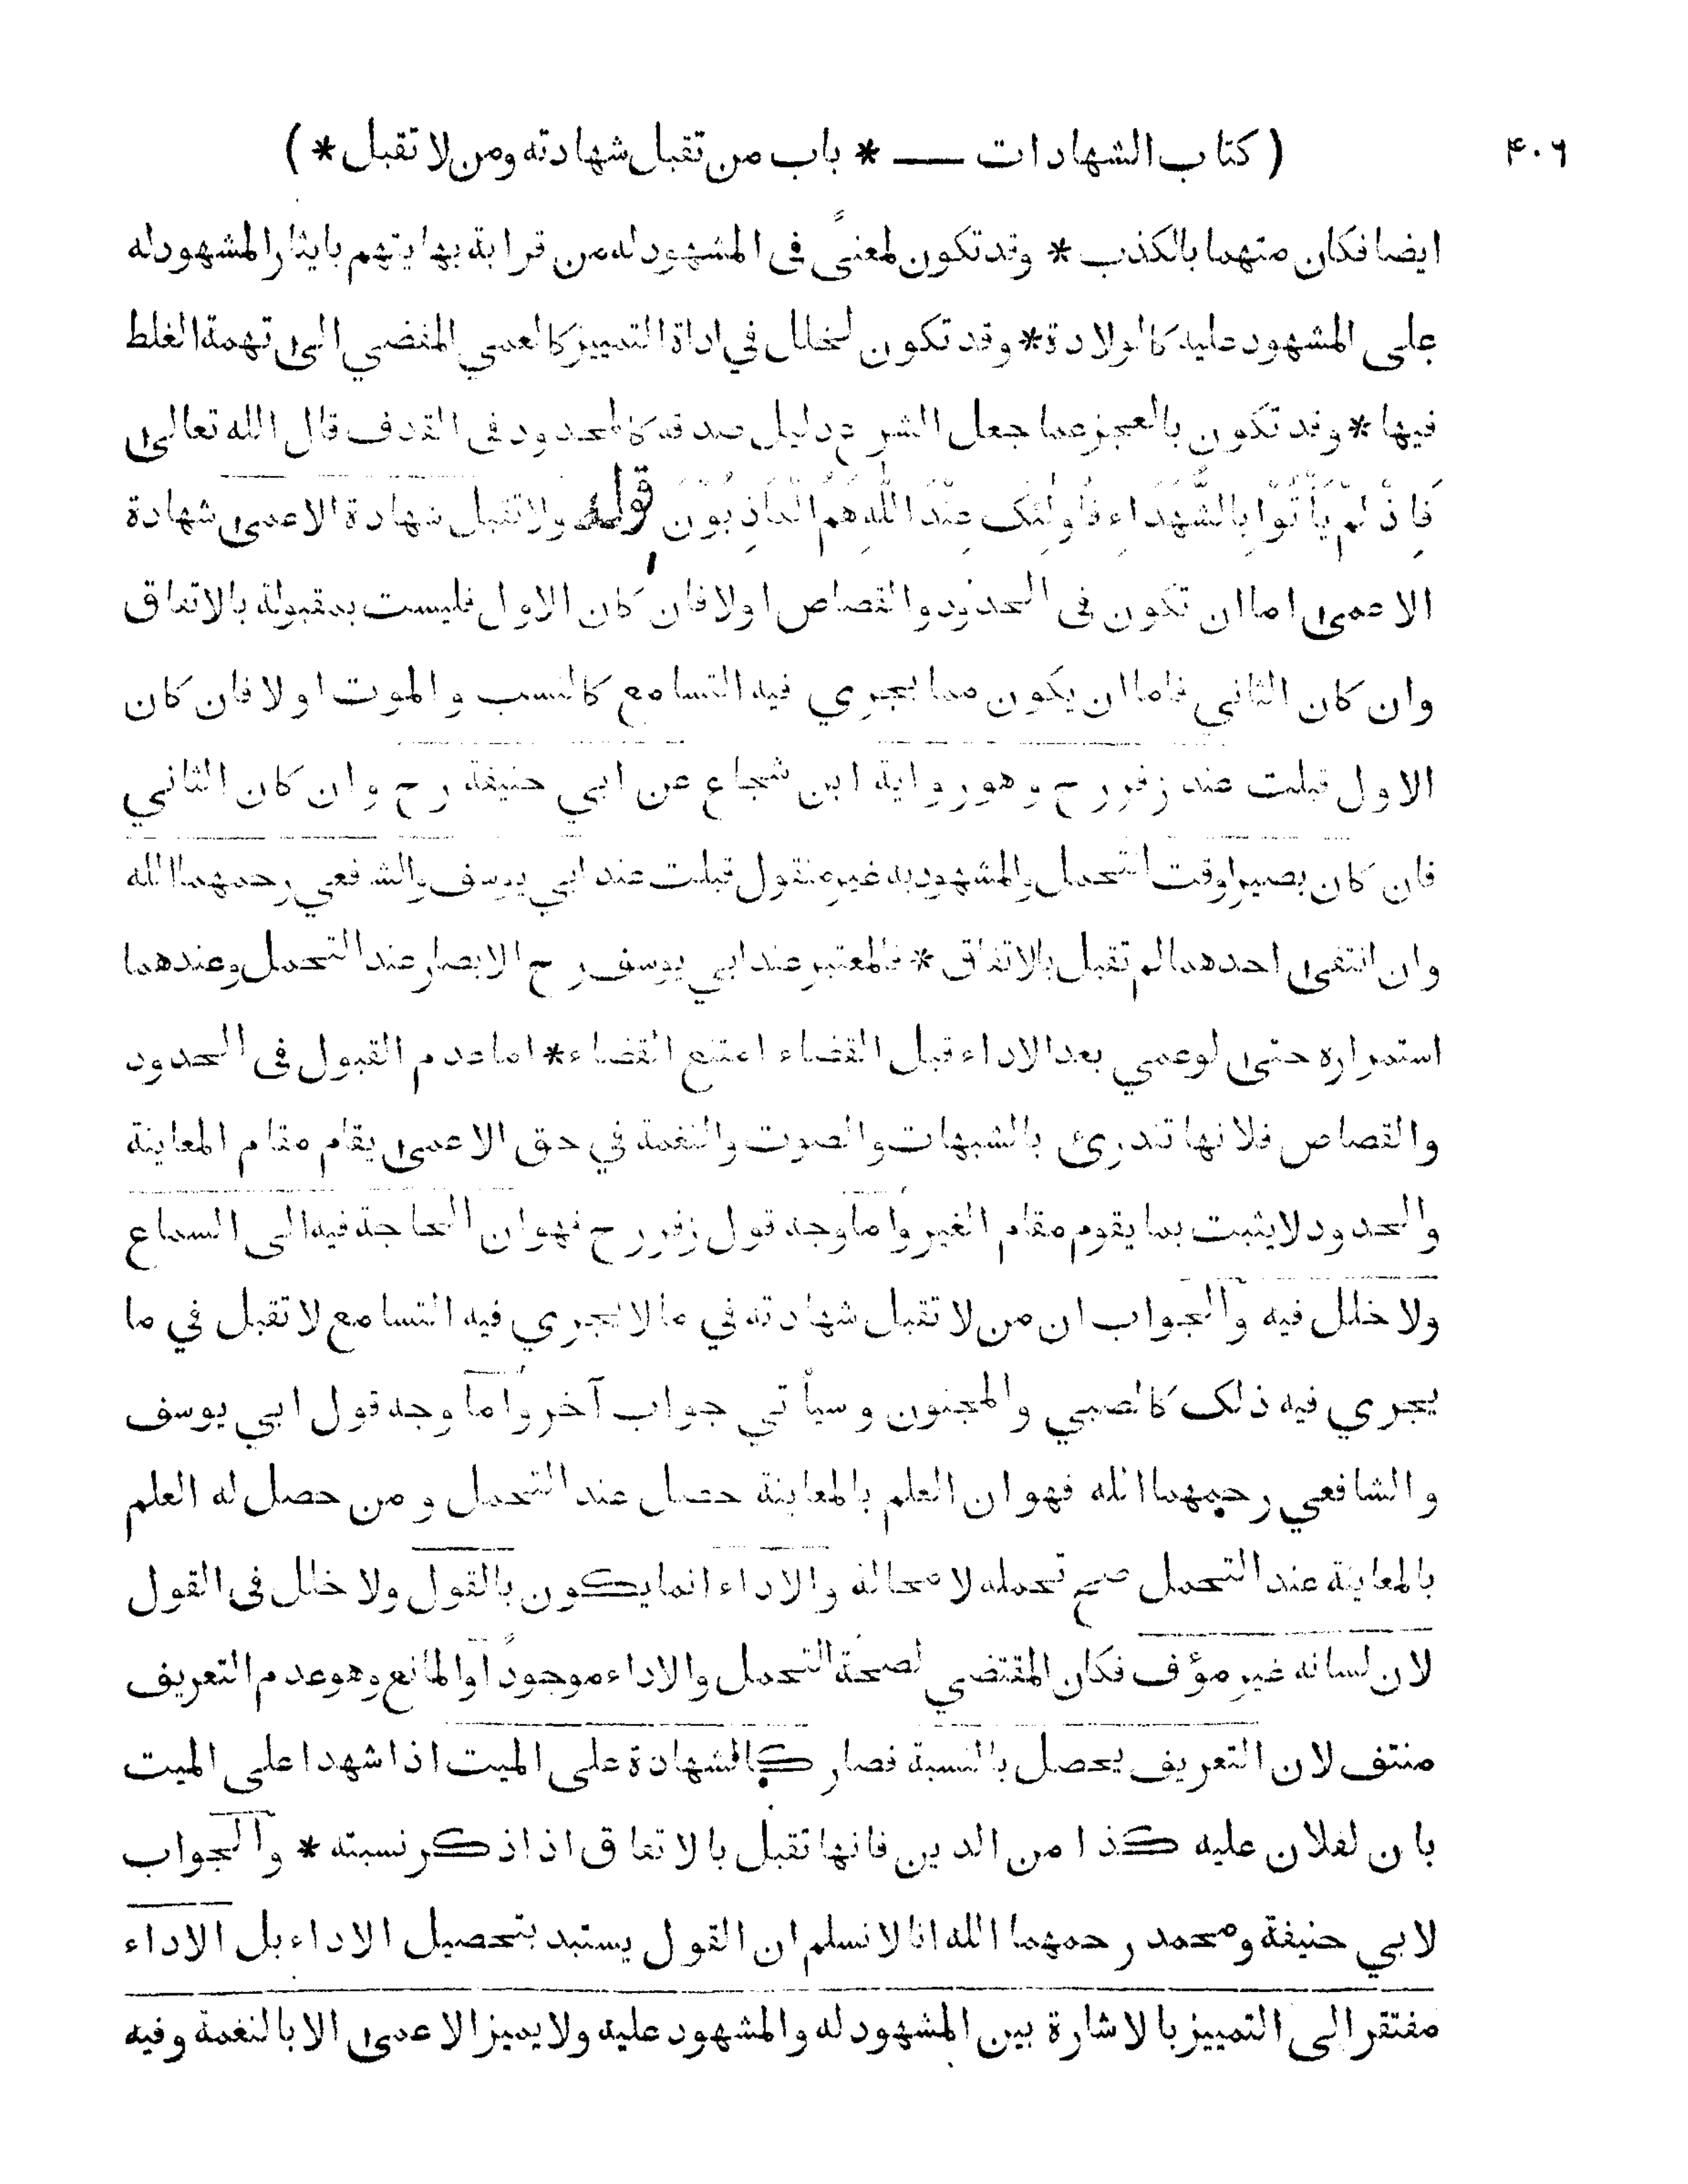 ۴۰۶ ( كتاب الشهادات — * باب من تقبل شهادته ومن لا تقبل * )
ايضا فكان متهما بالكذب * وقد تكون لمعنًى فى المشهود له من قرابة بها يتهم بايثار المشهود له
على المشهود عليه كالولادة * وقد تكون لخلل في اداة التمييز كالعمي المفضي الى تهمة الغلط
فيها * وقد تكون بالعجز عما جعل الشرع دليل صدقه كالمحدود فى القذف قال الله تعالى
فَاِذْ لَمْ يَأْتُوْا بِالشُّهَدَاءِ فَاُولٰئِكَ عِنْدَ اللّٰهِ هُمُ الْكَاذِبُوْنَ قوله ولا تقبل شهادة الاعمى شهادة
الاعمى اما ان تكون فى الحدود والقصاص اولا فان كان الاول فليست بمقبولة بالاتفاق
وان كان الثاني فاما ان يكون مما يجري فيه التسامع كالنسب والموت اولا فان كان
الاول قبلت عند زفر رح وهو رواية ابن شجاع عن ابي حنيفة رح وان كان الثاني
فان كان بصيرا وقت التحمل والمشهود به غير منقول قبلت عند ابي يوسف والشافعي رحمهما الله
وان انتفى احدهما لم تقبل بالاتفاق * فالمعتبر عند ابي يوسف رح الابصار عند التحمل وعندهما
استمراره حتى لو عمي بعد الاداء قبل القضاء امتنع القضاء * اما عدم القبول فى الحدود
والقصاص فلانها تندرئ بالشبهات والصوت والنغمة في حق الاعمى يقام مقام المعاينة
والحدود لا يثبت بما يقوم مقام الغير واما وجه قول زفر رح فهو ان الحاجة فيه الى السماع
ولا خلل فيه والجواب ان من لا تقبل شهادته في ما لا يجري فيه التسامع لا تقبل في ما
يجري فيه ذلك كالصبي والمجنون وسيأتي جواب آخر واما وجه قول ابي يوسف
والشافعي رحمهما الله فهو ان العلم بالمعاينة حصل عند التحمل ومن حصل له العلم
بالمعاينة عند التحمل صح تحمله لا محالة والاداء انما يكون بالقول ولا خلل فى القول
لان لسانه غير مؤف فكان المقتضي لصحة التحمل والاداء موجودًا والمانع وهو عدم التعريف
منتف لان التعريف يحصل بالنسبة فصار كالشهادة على الميت اذا شهدا على الميت
بان لفلان عليه كذا من الدين فانها تقبل بالاتفاق اذا ذكر نسبته * والجواب
لابي حنيفة ومحمد رحمهما الله انا لا نسلم ان القول يستبد بتحصيل الاداء بل الاداء
مفتقر الى التمييز بالاشارة بين المشهود له والمشهود عليه ولا يميز الاعمى الا بالنغمة وفيه